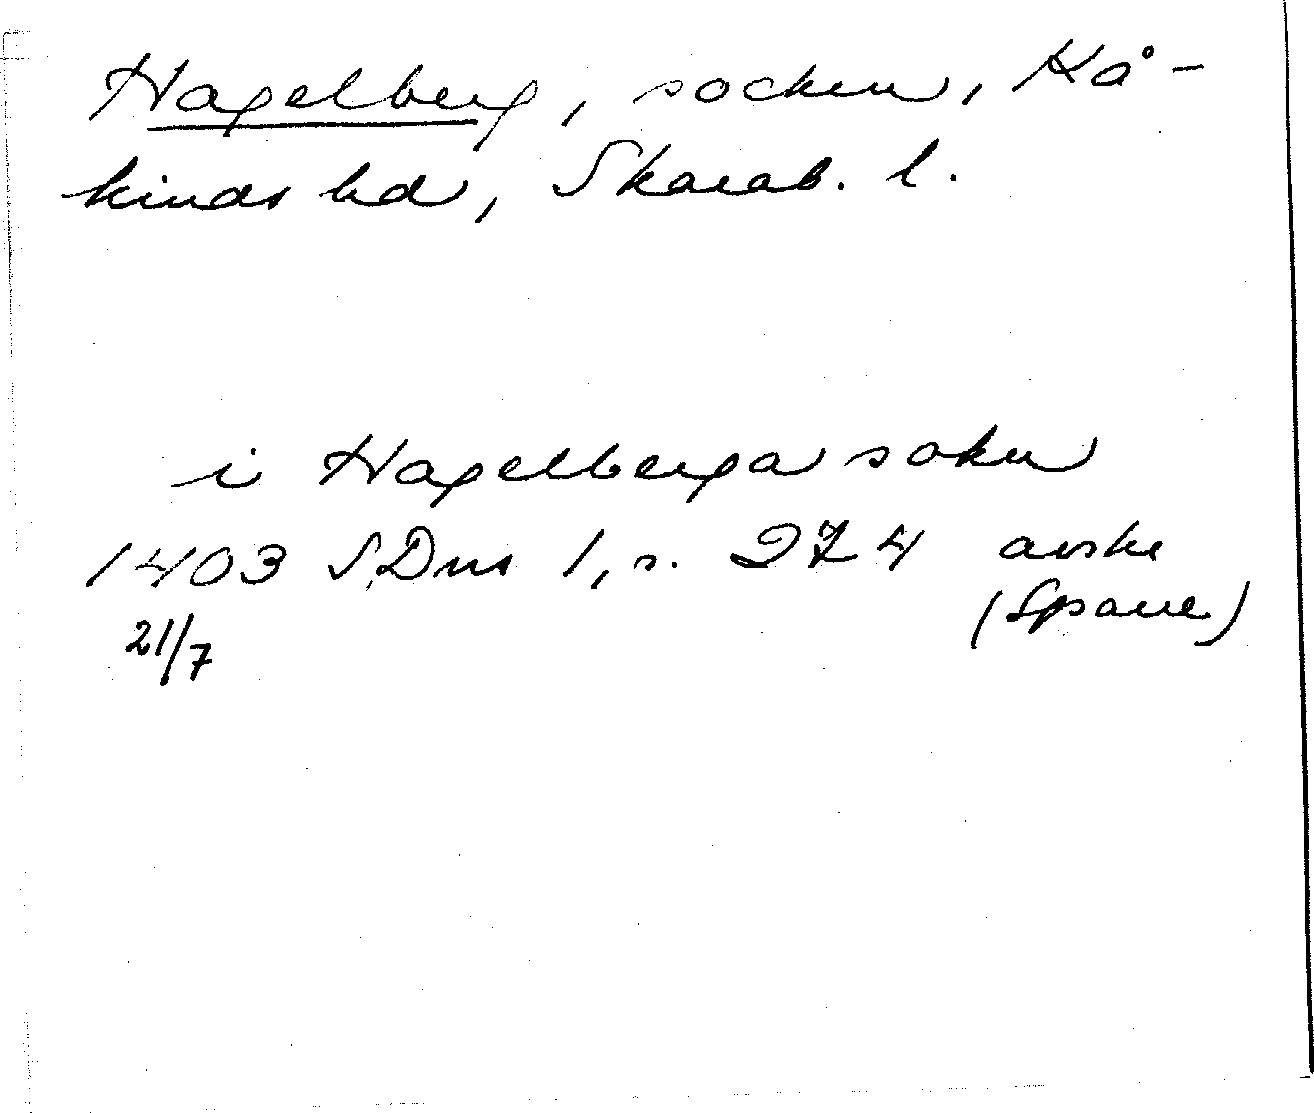 Hagelberg, socken, Kå-
kinds hd, Skarab. l.
i Hagelberga sokn
1403 SDns 1, s. 274 avskr
(Spare)
21/7